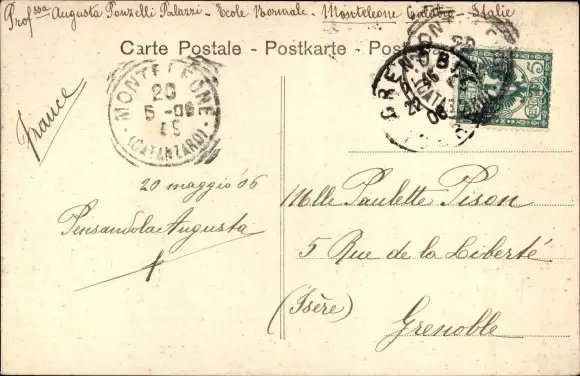 Prof.ssa Augusta Ponzelli Palazzi - Ecole Normale - Monteleone Calabro - Italie
Carte Postale - Postkarte - Post
France
MONTELEONE
20
5-06
(CATANZARO)
5
GRENOBLE
20 maggio '06
Pensandola Augusta
Mlle Paulette Pison
5 Rue de la Liberté
(Isère)
Grenoble